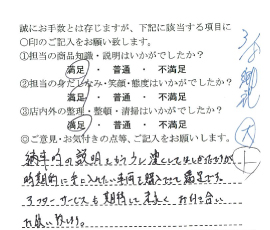 誠にお手数とは存じますが、下記に該当する項目に
〇印のご記入をお願い致します。
①担当の商品知識・説明はいかがでしたか？
満足・普通・不満足
②担当の身だしなみ・笑顔・態度はいかがでしたか？
満足・普通・不満足
③店内外の整理・整頓・清掃はいかがでしたか？
満足・普通・不満足
◎ご意見・お気付きの点等、ご記入をお願いします。
の説明
に手に入れたい車両を購入できて満足です。
アフターサービスも期待して末永くお付き合い
お願い致します。